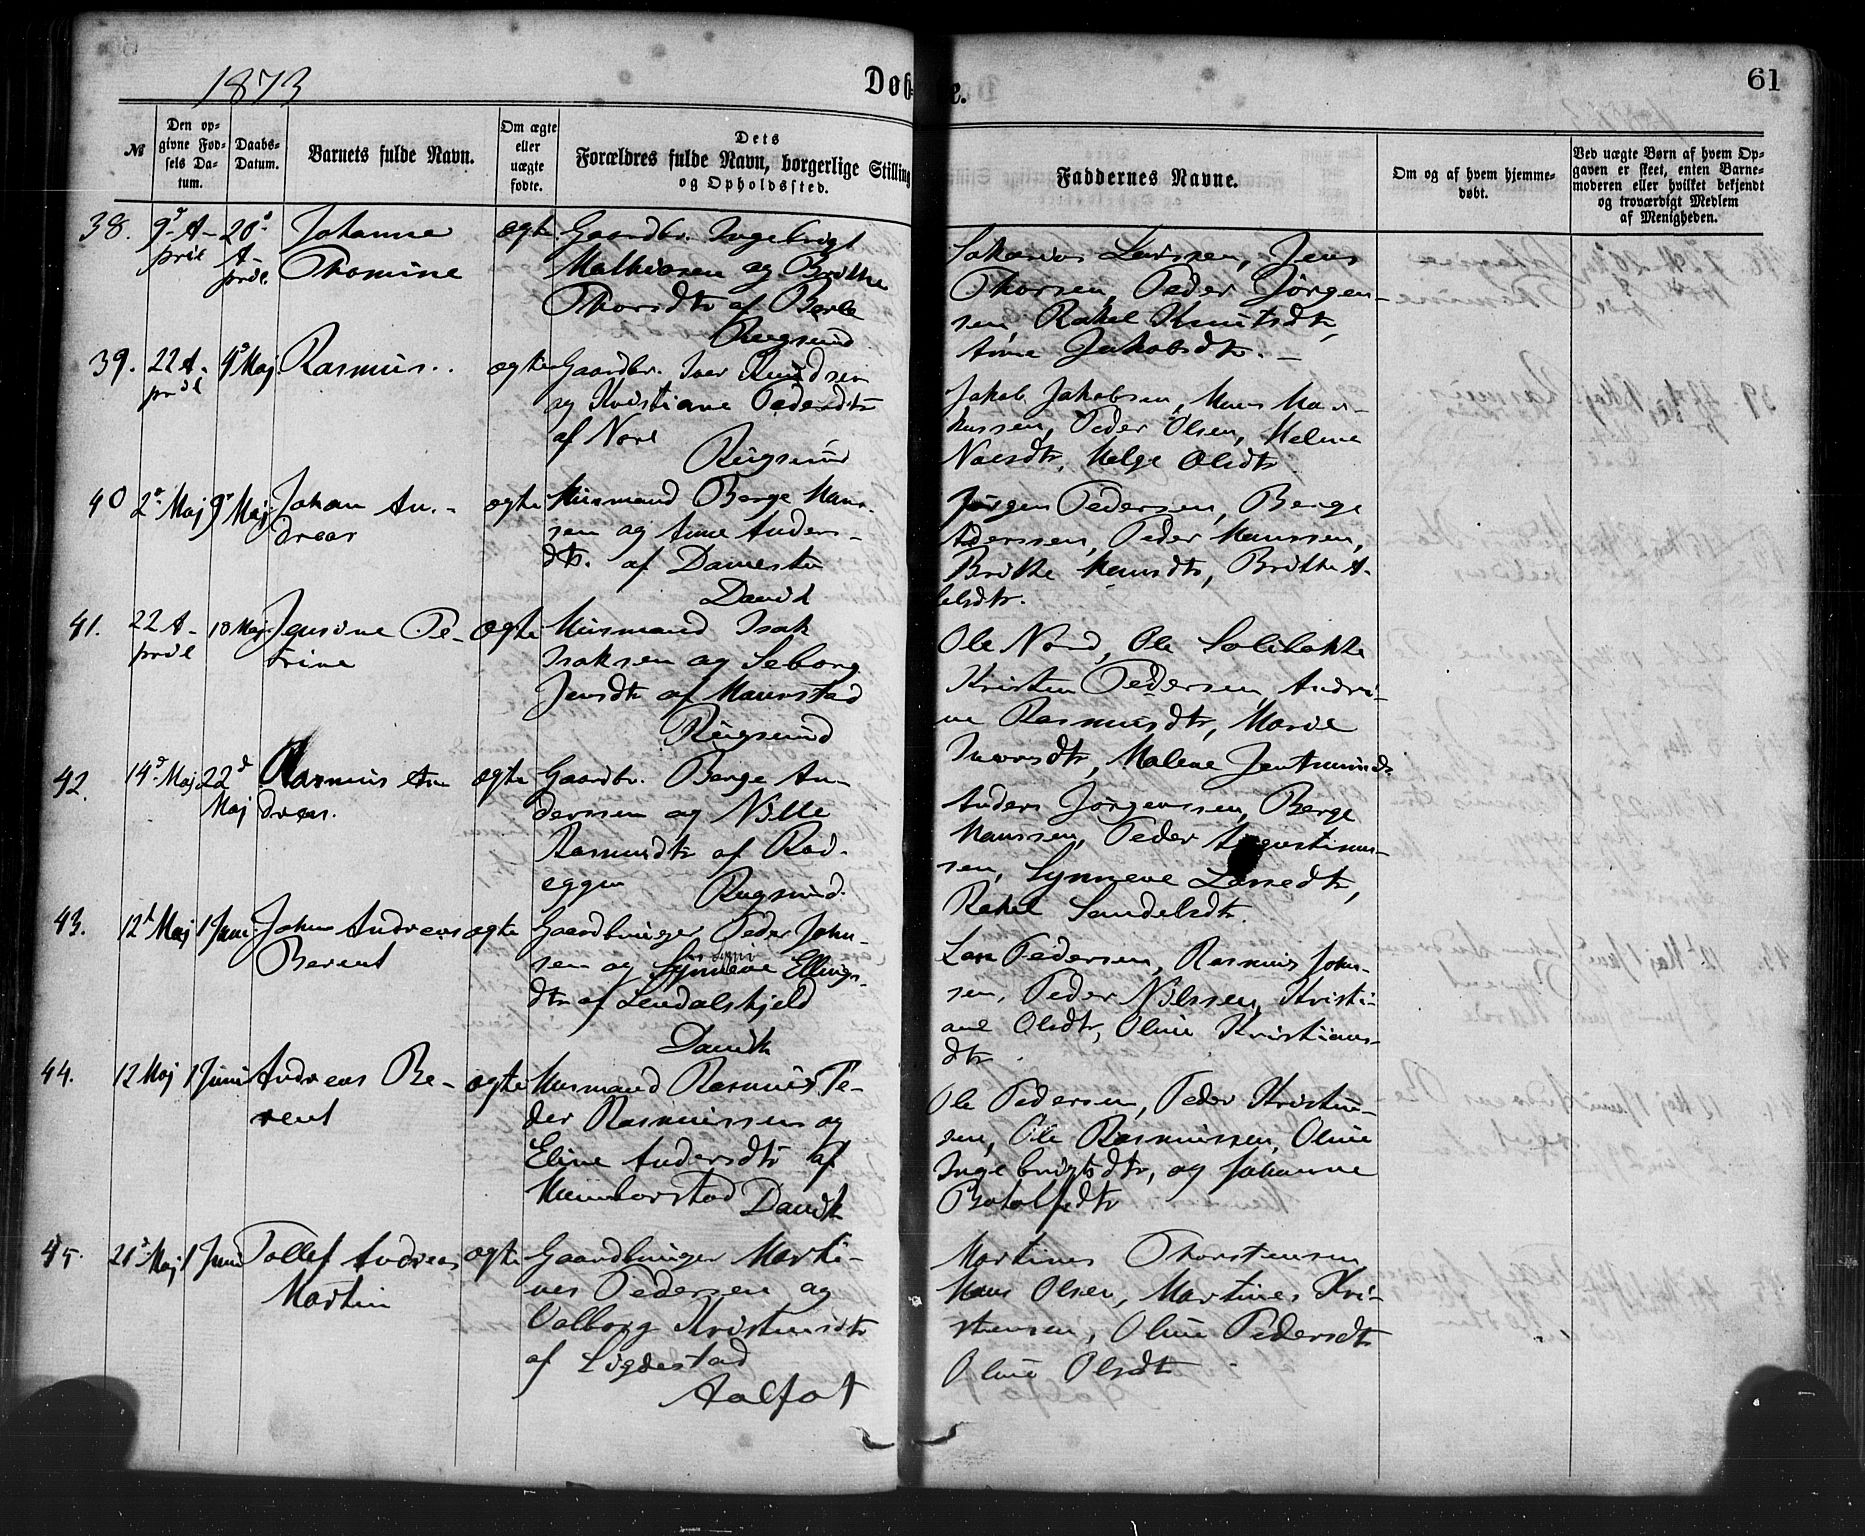 1873
Døb
e.
61
№
Den op-
givne Fød-
sels Da-
tum.
Daabs-
Datum.
Barnets fulde Navn.
Om ægte
eller
uægte
fødte.
Dets
Forældres fulde Navn, borgerlige Stilling
og Opholdssted.
Faddernes Navne.
Om og af hvem hjemme-
døbt.
Ved uægte Børn af hvem Op-
gaven er skeet, enten Barne-
moderen eller hvilket bekjendt
og troværdigt Medlem
af Menigheden.
38.
9d A-
pril
20d
A-
pril
Johanne
Thomine
ægte
Gaardbr. Ingebrigt
Mathiasen og Brithe
Thorsdtr af Berle
Rugsund
Larssen, Jens
Thorsen, Peder Jørgen-
sen, Rakel Knutsdtr,
Anne Jakobsdtr.
39.
22 A-
pril
4d Maj
Rasmus.
ægte
Gaardbr. Iver Knudsen
og Kristiane Pedersdtr
af Nore
Rugsund
Jakob Jakobsen, Hans Mar-
kussen, Peder Olsen, Helene
Helge Olsdtr
40
2d Maj
9d Maj
Johan An-
dreas
ægte
Husmand Berge Hans-
sen og Anne Anders-
dtr. af
Davik
Jørgen Pedersen, Berge
Anderssen, Peder Hanssen,
Brithe Hansdtr, Brithe A-
belsdtr.
41.
22 A-
pril
18 Maj
Jensine Pe-
trine
ægte
Husmand Isak
Isaksen og Seborg
Jensdtr af Maurstad
Rugsund
Ole Nord, Ole
Kristen Pedersen, Andri-
ne Rasmusdtr, Marie
Iversdtr, Malene
42.
14d Maj
22d
Maj
Rasmus An
dreas.
ægte
Gaardbr. Berge An-
derssen og Nille
Rasmusdtr af Rød-
eggen
Rugsund.
Anders Jørgenssen, Berge
Hanssen, Peder Augustinus-
sen, Synneve Lassedtr,
Rakel Sandelsdtr.
43.
12d Maj
1 Juni
Johan Andreas
Berent
ægte
Gaardbruger Peder John-
sen og Synneve Ellings-
dtr af Lendalskjeld
Davik
Lars Pedersen, Rasmus John-
sen, Peder Nilssen, Kristi-
ane Olsdtr, Oline Kristians-
dtr.
44.
12 Maj
1 Juni
Andreas Be-
rent
ægte
Husmand Rasmus Pe-
der Rasmussen og
Eline Andersdtr af
Davik
Ole Pedersen, Peder Kristen-
sen, Ole Rasmussen, Oline
Ingebrigtsdtr, og Johanne
Botolfsdtr
45.
21d Maj
1 Juni
Tollef Andreas
Martin
ægte
Gaardbruger Marti-
nus Pedersen og
Valborg Kristensdtr
af Ligdestad
Aalfot
Martines Thorstensen
Hans Olsen, Martines Kri-
stensen, Oline Pedersdtr
Oline Olsdtr